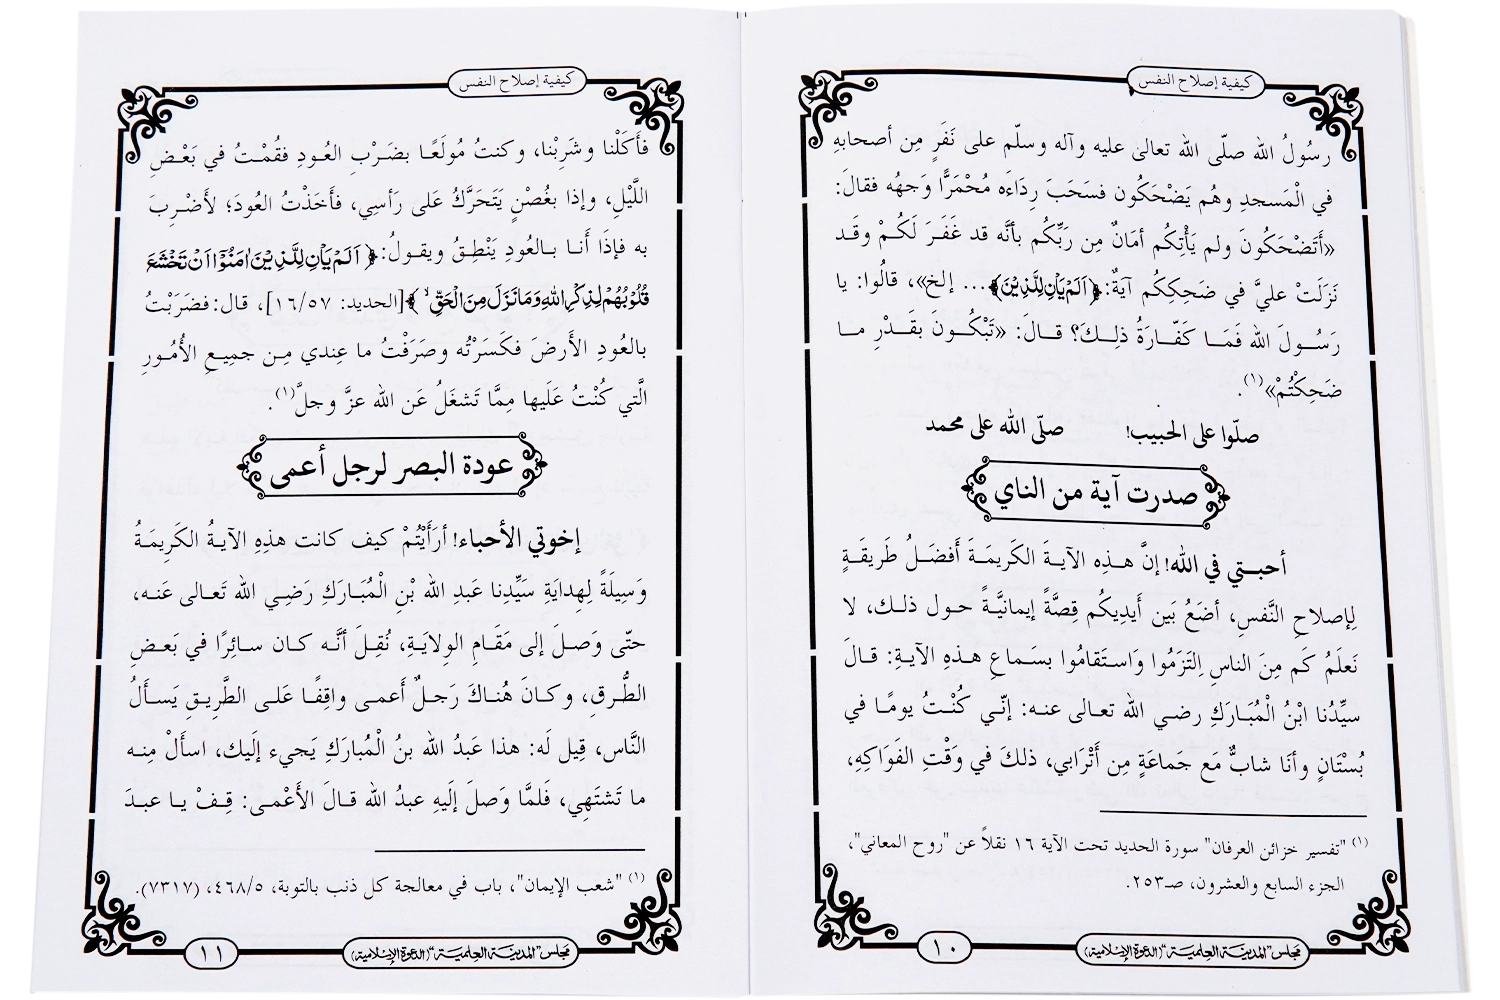 كيفية إصلاح النفس
رسُولُ الله صلّى الله تعالى عليه وآله وسلّم على نَفَرٍ مِن أصحابِهِ
في الْمَسجدِ وهُم يَضْحَكُون فسَحَبَ رِدَاءَه مُحْمَرًّا وَجهُه فقالَ:
«أَتَضْحَكُونَ ولم يَأْتِكُم أمَانٌ مِن رَبِّكُم بأنَّه قد غَفَرَ لَكُمْ وقَد
نَزَلَتْ عليَّ في ضَحِكِكُم آيةٌ: ﴿اَلَمْ يَاْنِ لِلَّذِيْنَ﴾... إلخ»، قالُوا: يا
رَسُولَ الله فَمَا كَفّارَةُ ذلِكَ؟ قالَ: «تَبْكُونَ بقَدْرِ ما
ضَحِكْتُمْ»(١).
صلّوا على الحبيب! صلّى الله على محمد
صدرت آية من الناي
أحبتي في الله! إنَّ هذِه الآيةَ الكَريمَةَ أَفضَلُ طَريقَةٍ
لِإصلاحِ النَّفسِ، أضَعُ بَين أَيدِيكُم قِصَّةً إيمانيَّةً حول ذلك، لا
نَعلَمُ كم مِنَ الناسِ اِلتَزَمُوا وَاستَقامُوا بسَماعِ هذِهِ الآيةِ: قالَ
سيِّدُنا ابْنُ الْمُبَارَكِ رضي الله تعالى عنه: إنّي كُنْتُ يومًا في
بُستَانٍ وأنَا شابٌّ مَع جَماعَةٍ مِن أَتْرَابي، ذلكَ في وَقْتِ الفَواكِهِ،
(١) "تفسير خزائن العرفان" سورة الحديد تحت الآية ١٦ نقلاً عن "روح المعاني"،
الجزء السابع والعشرون، صـ٢٥٣.
مجلس "المدينة العلمية" (الدعوة الإسلامية)
١٠
كيفية إصلاح النفس
فَأَكَلْنا وشَرِبْنا، وكنتُ مُولَعًا بضَرْبِ العُودِ فقُمْتُ في بَعْضِ
اللَّيْلِ، وإذا بغُصْنٍ يَتَحَرَّكُ عَلى رَأسِي، فأَخَذْتُ العُودَ؛ لأَضْرِبَ
به فإذَا أَنا بالعُودِ يَنْطِقُ ويقولُ: ﴿اَلَمْ يَاْنِ لِلَّذِيْنَ اٰمَنُوْۤا اَنْ تَخْشَعَ
قُلُوْبُهُمْ لِذِكْرِ اللّٰهِ وَمَا نَزَلَ مِنَ الْحَقِّۙ﴾[الحديد: ١٦/٥٧]، قال: فضَرَبْتُ
بالعُودِ الأرضَ فكَسَرْتُه وصَرَفْتُ ما عِندي مِن جميعِ الأُمُورِ
الَّتي كُنْتُ عَلَيها مِمَّا تَشغَلُ عَن الله عزَّ وجلَّ(١).
عودة البصر لرجل أعمى
إخوتي الأحباء! أرَأَيْتُمْ كيف كانت هذِهِ الآيةُ الكَرِيمَةُ
وَسِيلَةً لِهِدايَةِ سَيِّدِنا عَبدِ الله بْنِ الْمُبَارَكِ رَضِي الله تَعالى عَنه،
حتّى وَصلَ إلى مَقَامِ الوِلايَةِ، نُقِلَ أنَّه كان سائِرًا في بَعضِ
الطُّرقِ، وكانَ هُناكَ رَجلٌ أعمى واقِفًا عَلى الطَّريقِ يَسأَلُ
النَّاس، قِيل لَه: هذا عَبدُ الله بنُ الْمُبارَكِ يَجيء إلَيك، اسأَلْ مِنه
ما تَشْتَهِي، فَلمَّا وَصلَ إلَيهِ عبدُ الله قالَ الأَعْمى: قِفْ يا عبدَ
(١) "شعب الإيمان"، باب في معالجة كل ذنب بالتوبة، ٤٦٨/٥، (٧٣١٧).
مجلس "المدينة العلمية" (الدعوة الإسلامية)
١١